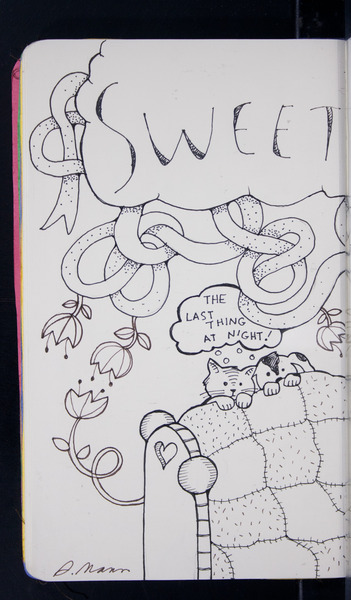 SWEET
THE
LAST
THING
AT NIGHT!
D. Mann